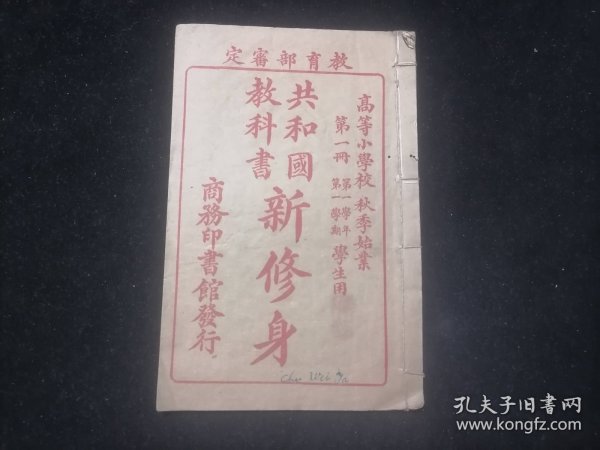 教育部審定
高等小學校 秋季始業
第一冊 第一學年 第一學期 學生用
共和國
教科書
新修身
商務印書館發行
孔夫子旧书网
www.kongfz.com